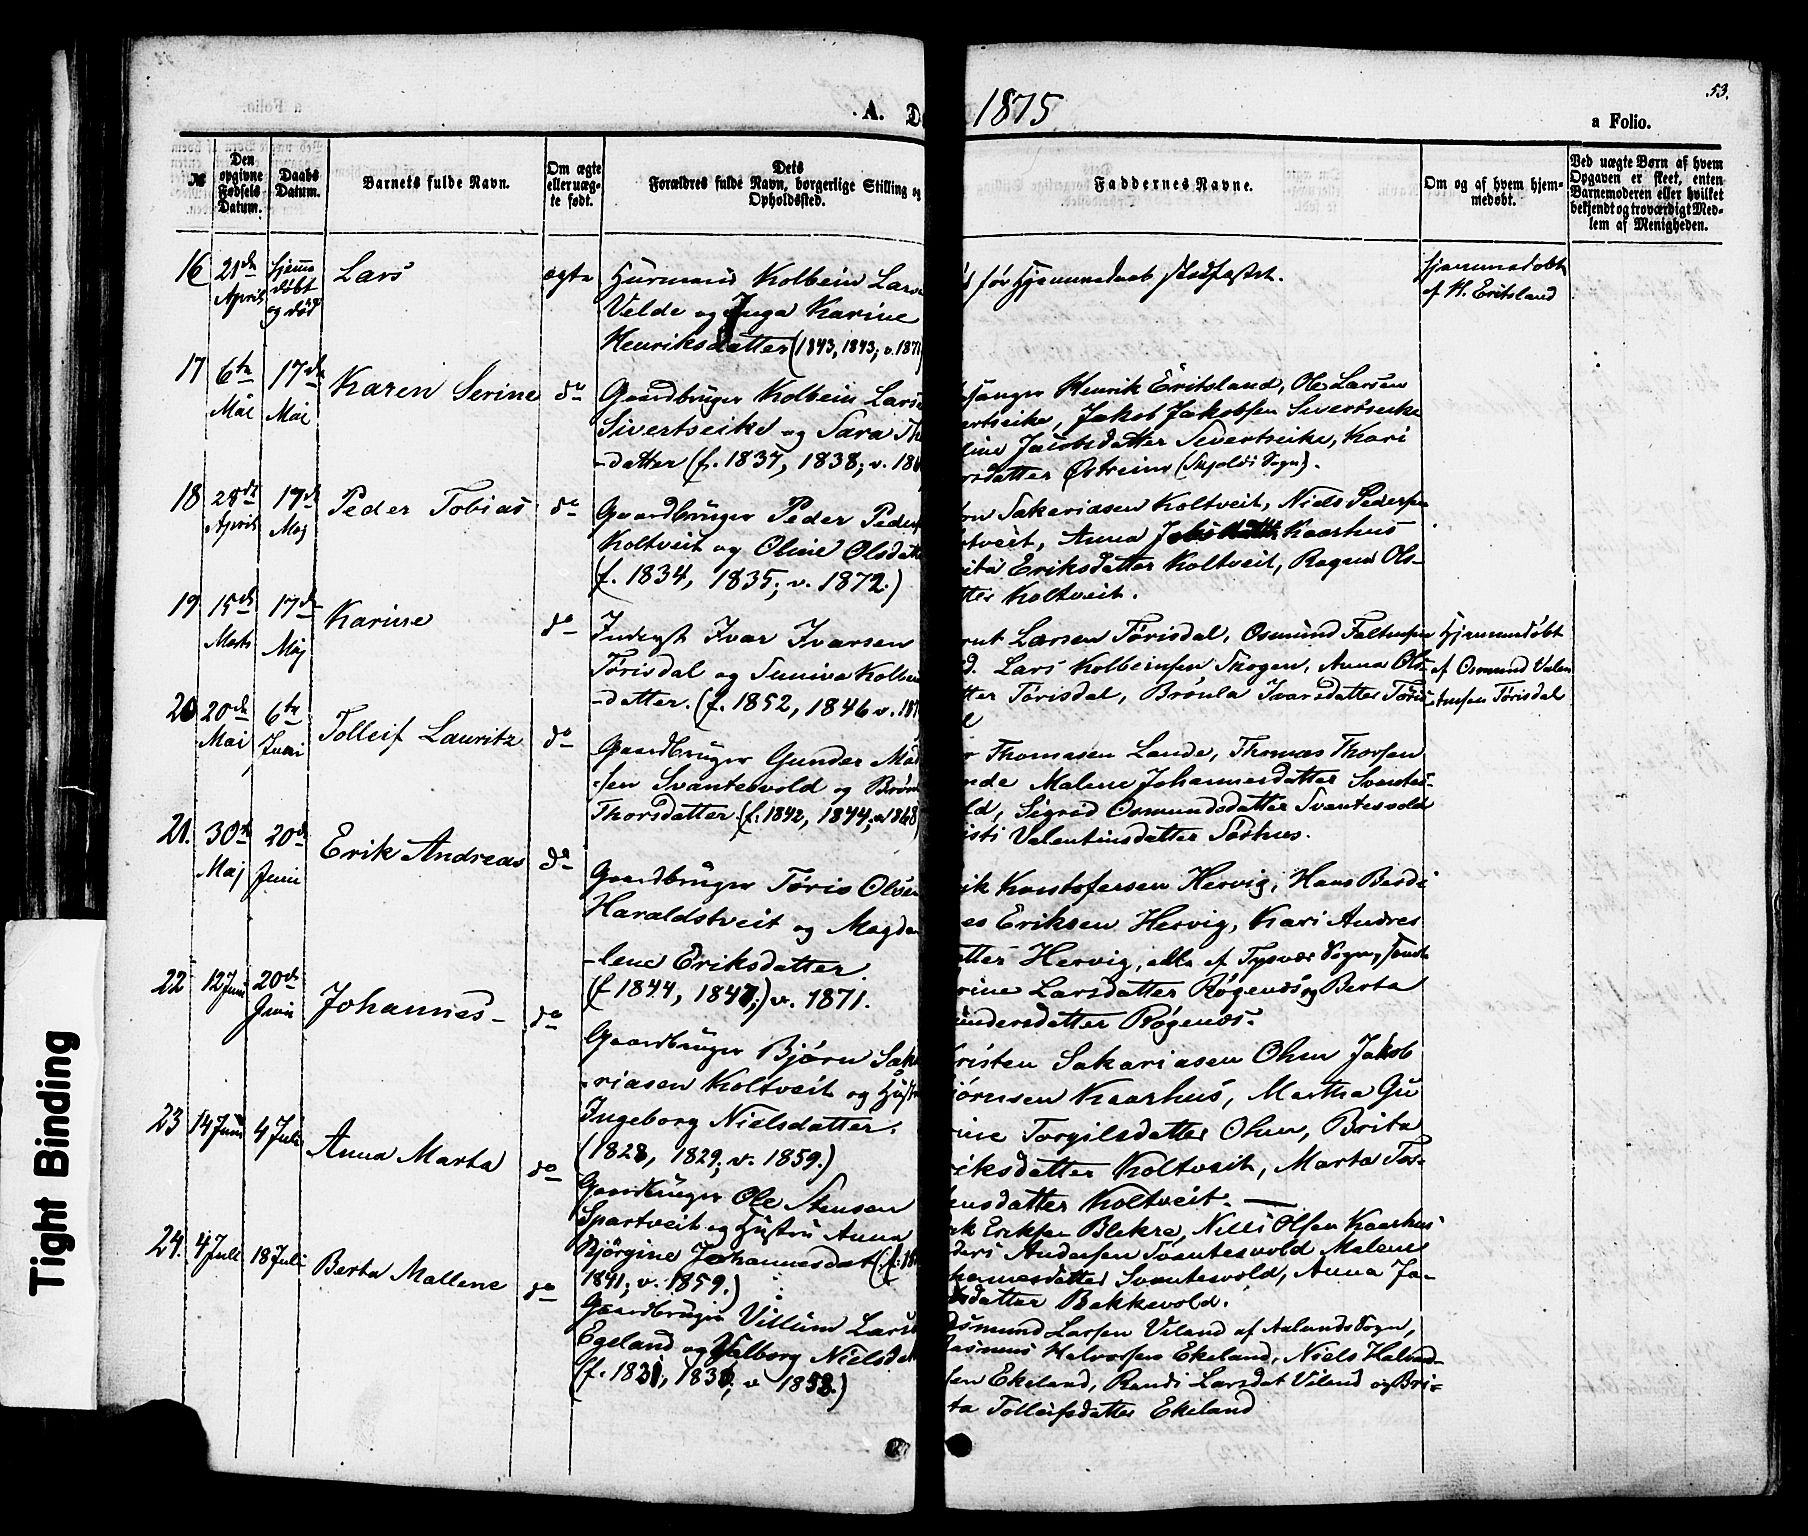 53.
A. D
1875
a Folio.
№
Den opgivne Fødsels Datum.
Daabs Datum.
Barnets fulde Navn.
Om ægte eller uæg-te født.
Dets
Forældres fulde Navn, borgerlige Stilling og
Opholdssted.
Faddernes Navne.
Om og af hvem hjem-
medøbt.
Ved uægte Børn af hvem
Opgaven er skeet, enten
Barnemoderen eller hvilket
bekjendt og troværdigt Med-
lem af Menigheden.
16 21de April Hjemmedøbt og død Lars ægte
Huusmand Kolbein Lars
Velde og Inga Karine
Henriksdatter (1843, 1843; v. 1871
før Hjemmedaab stadfæstet.
Hjemmedøbt
af H. Eritsland
17 6te Mai 17de Mai Karen Serine do
Gaardbruger Kolbein Lars
Sivertseike og Sara Th
-datter (f. 1837, 1838; v. 18
sanger Henrik Eritsland, Ole Larsen
ertseike, Jakob Jakobsen Severtseike
line Jacobsdatter Severtseike, Kari
rsdatter Østreim (Skjolds Sogn).
18 28de April 17de Maj Peder Tobias do
Gaardbruger Peder Peders
Koltveit og Oline Olsdatt
(f. 1834, 1835; v. 1872.)
Sakariasen Koltveit, Niels Pedersen
tveit, Anna Kaarhus
ita Eriksdatter Koltveit, Ragna Ols-
tter Koltveit.
19 15de Marts 17de Maj Karine do
Inderst Ivar Ivarsen
Tørisdal og Suniva Kolbein
-datter. (f. 1852, 1846 v. 187
rut Larsen Tørisdal, Osmund
d. Lars Kolbeinsen Skogen, Anna Ols-
tter Tørisdal, Brønla Ivarsdatter Tøris
Hjemmedøbt
af Osmund Valen
tinsen Tørisdal
20 20de Mai 6te Juni Tolleif Lauritz do
Gaardbruger Gunder Mad
-sen Svantesvold og Brøn
Thorsdatter. (f. 1842, 1844; v. 1868)
r Thomasen Lande, Thomas Thorsen
nde Malene Johannesdatter Svantes-
ld, Sigrid Osmundsdatter Svantesvold
isti Valentinsdatter Aarhus.
21. 30te Maj 20de Juni Erik Andreas do
Gaardbruger Tøris Olsen
Haraldstveit og Magda
-lene Eriksdatter.
(f 1844, 1847;) v. 1871.
rik Kristofersen Hervig, Hans Berdi
es Eriksen Hervig, Kari Andres
atter Hervig, alle af Tysvær Sogn,
rine Larsdatter Røgenæs og Berta
undersdatter Røgenæs.
22 12 Juni 20de Juni Johannes- do
Gaardbruger Bjørn Saka
-riasen Koltveit og Hustru
Ingeborg Nielsdatter.
(1828, 1829; v. 1859.)
risten Sakariasen Ohm Jakob
jørnsen Kaarhus, Martha Gu
rine Torgilsdatter Ohm, Brita
riksdatter Koltveit, Marta Tor-
ensdatter Koltveit. —
23 14 Juni 4 Juli Anna Marta do
Gaardbruger Ole Stensen
Spartveit og Hustru Anna
Bjørgine Johannesdat (f. 18
1841; v. 1859.)
rik Eriksen Blekre, Nills Olsen Kaarhus
ders Andersen Svantesvold Malene
hannesdatter Svantesvold, Anna Ja-
bsdatter Bakkevold.
24. 4 Juli 18 Juli Berta Mallene do
Gaardbruger Villum Lars
Egeland og Valborg Nielsdat
(f. 1831, 1836; v 1858.)
Osmund Larsen Viland af Aalunds Sogn,
Rasmus Halvorsen Ekeland, Niels Halvor-
sen Ekeland, Randi Larsdat Viland og Bri-
ta Tolleifsdatter Ekeland
Tight Binding